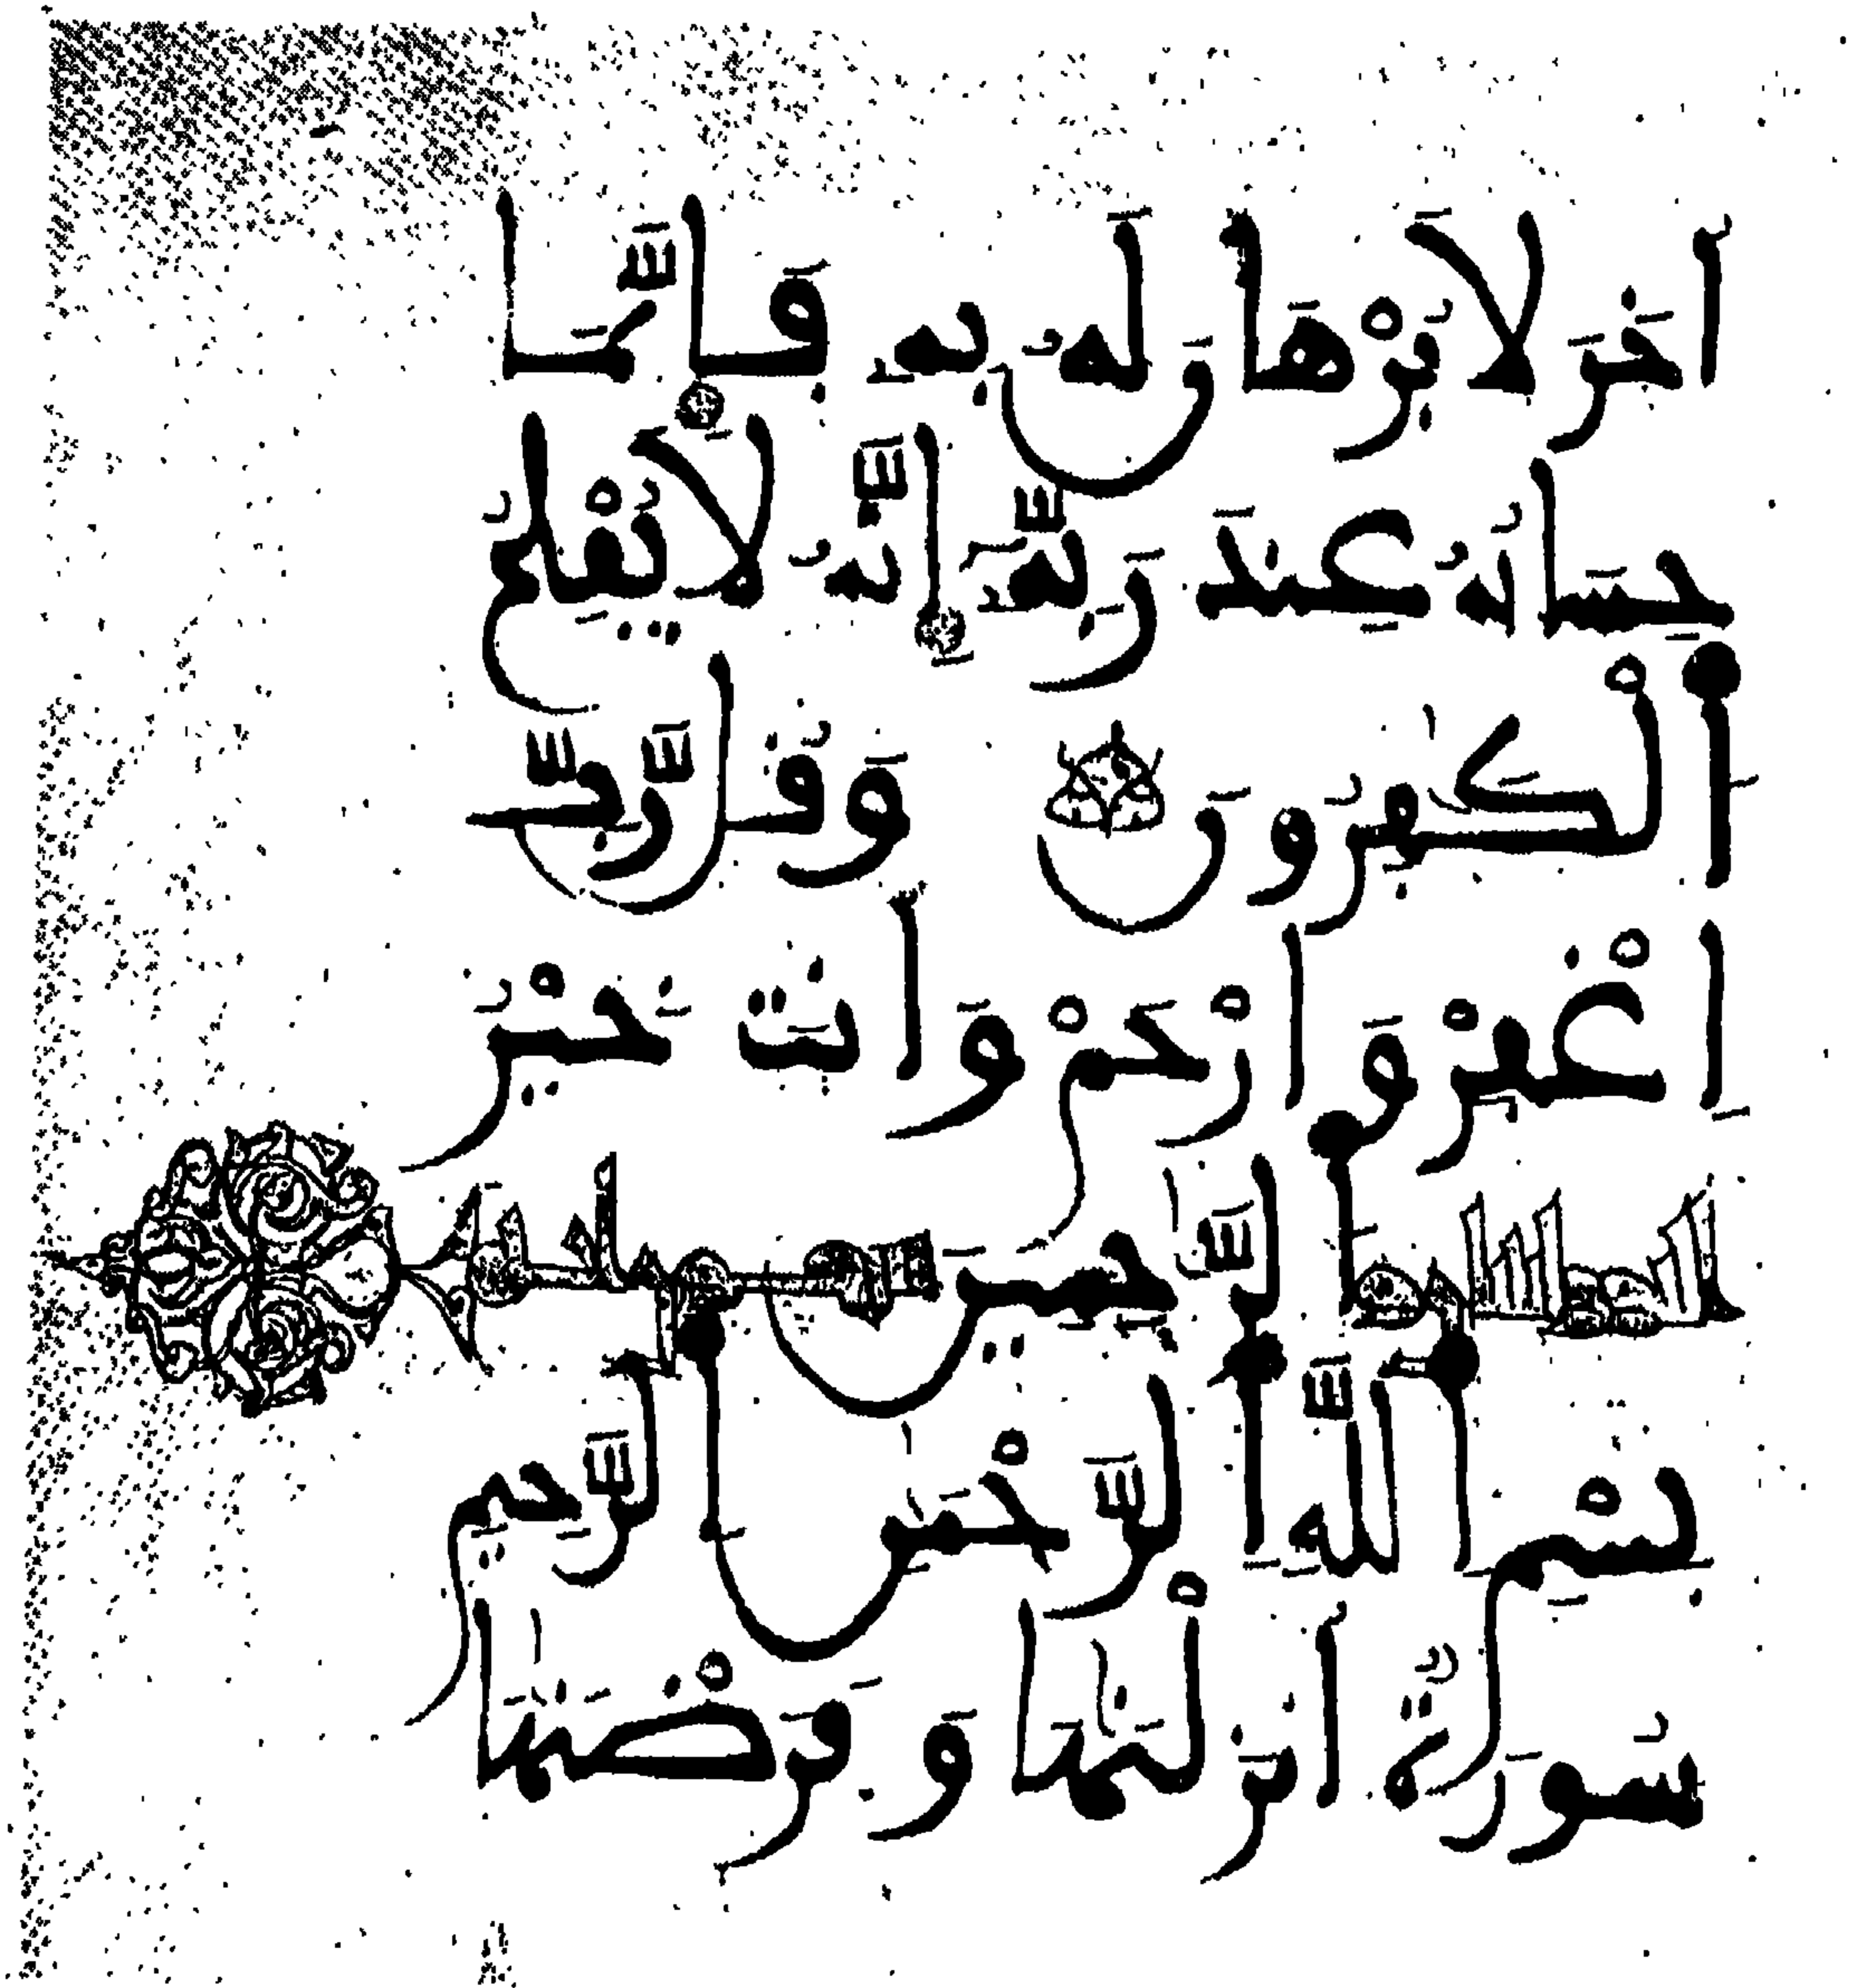 ءَاخَرَ لَا بُرْهَانَ لَهُ بِهِ فَإِنَّمَا
حِسَابُهُ عِندَ رَبِّهِ إِنَّهُ لَا يُفْلِحُ
اَ۬لْكَٰفِرُونَ وَقُل رَّبِّ
اِ۪غْفِرْ وَارْحَمْ وَأَنتَ خَيْرُ
اَ۬لرَّٰحِمِينَ
بِسْمِ اِ۬للَّهِ اِ۬لرَّحْمَٰنِ اِ۬لرَّحِيمِ
سُورَةٌ أَنزَلْنَٰهَا وَفَرَضْنَٰهَا